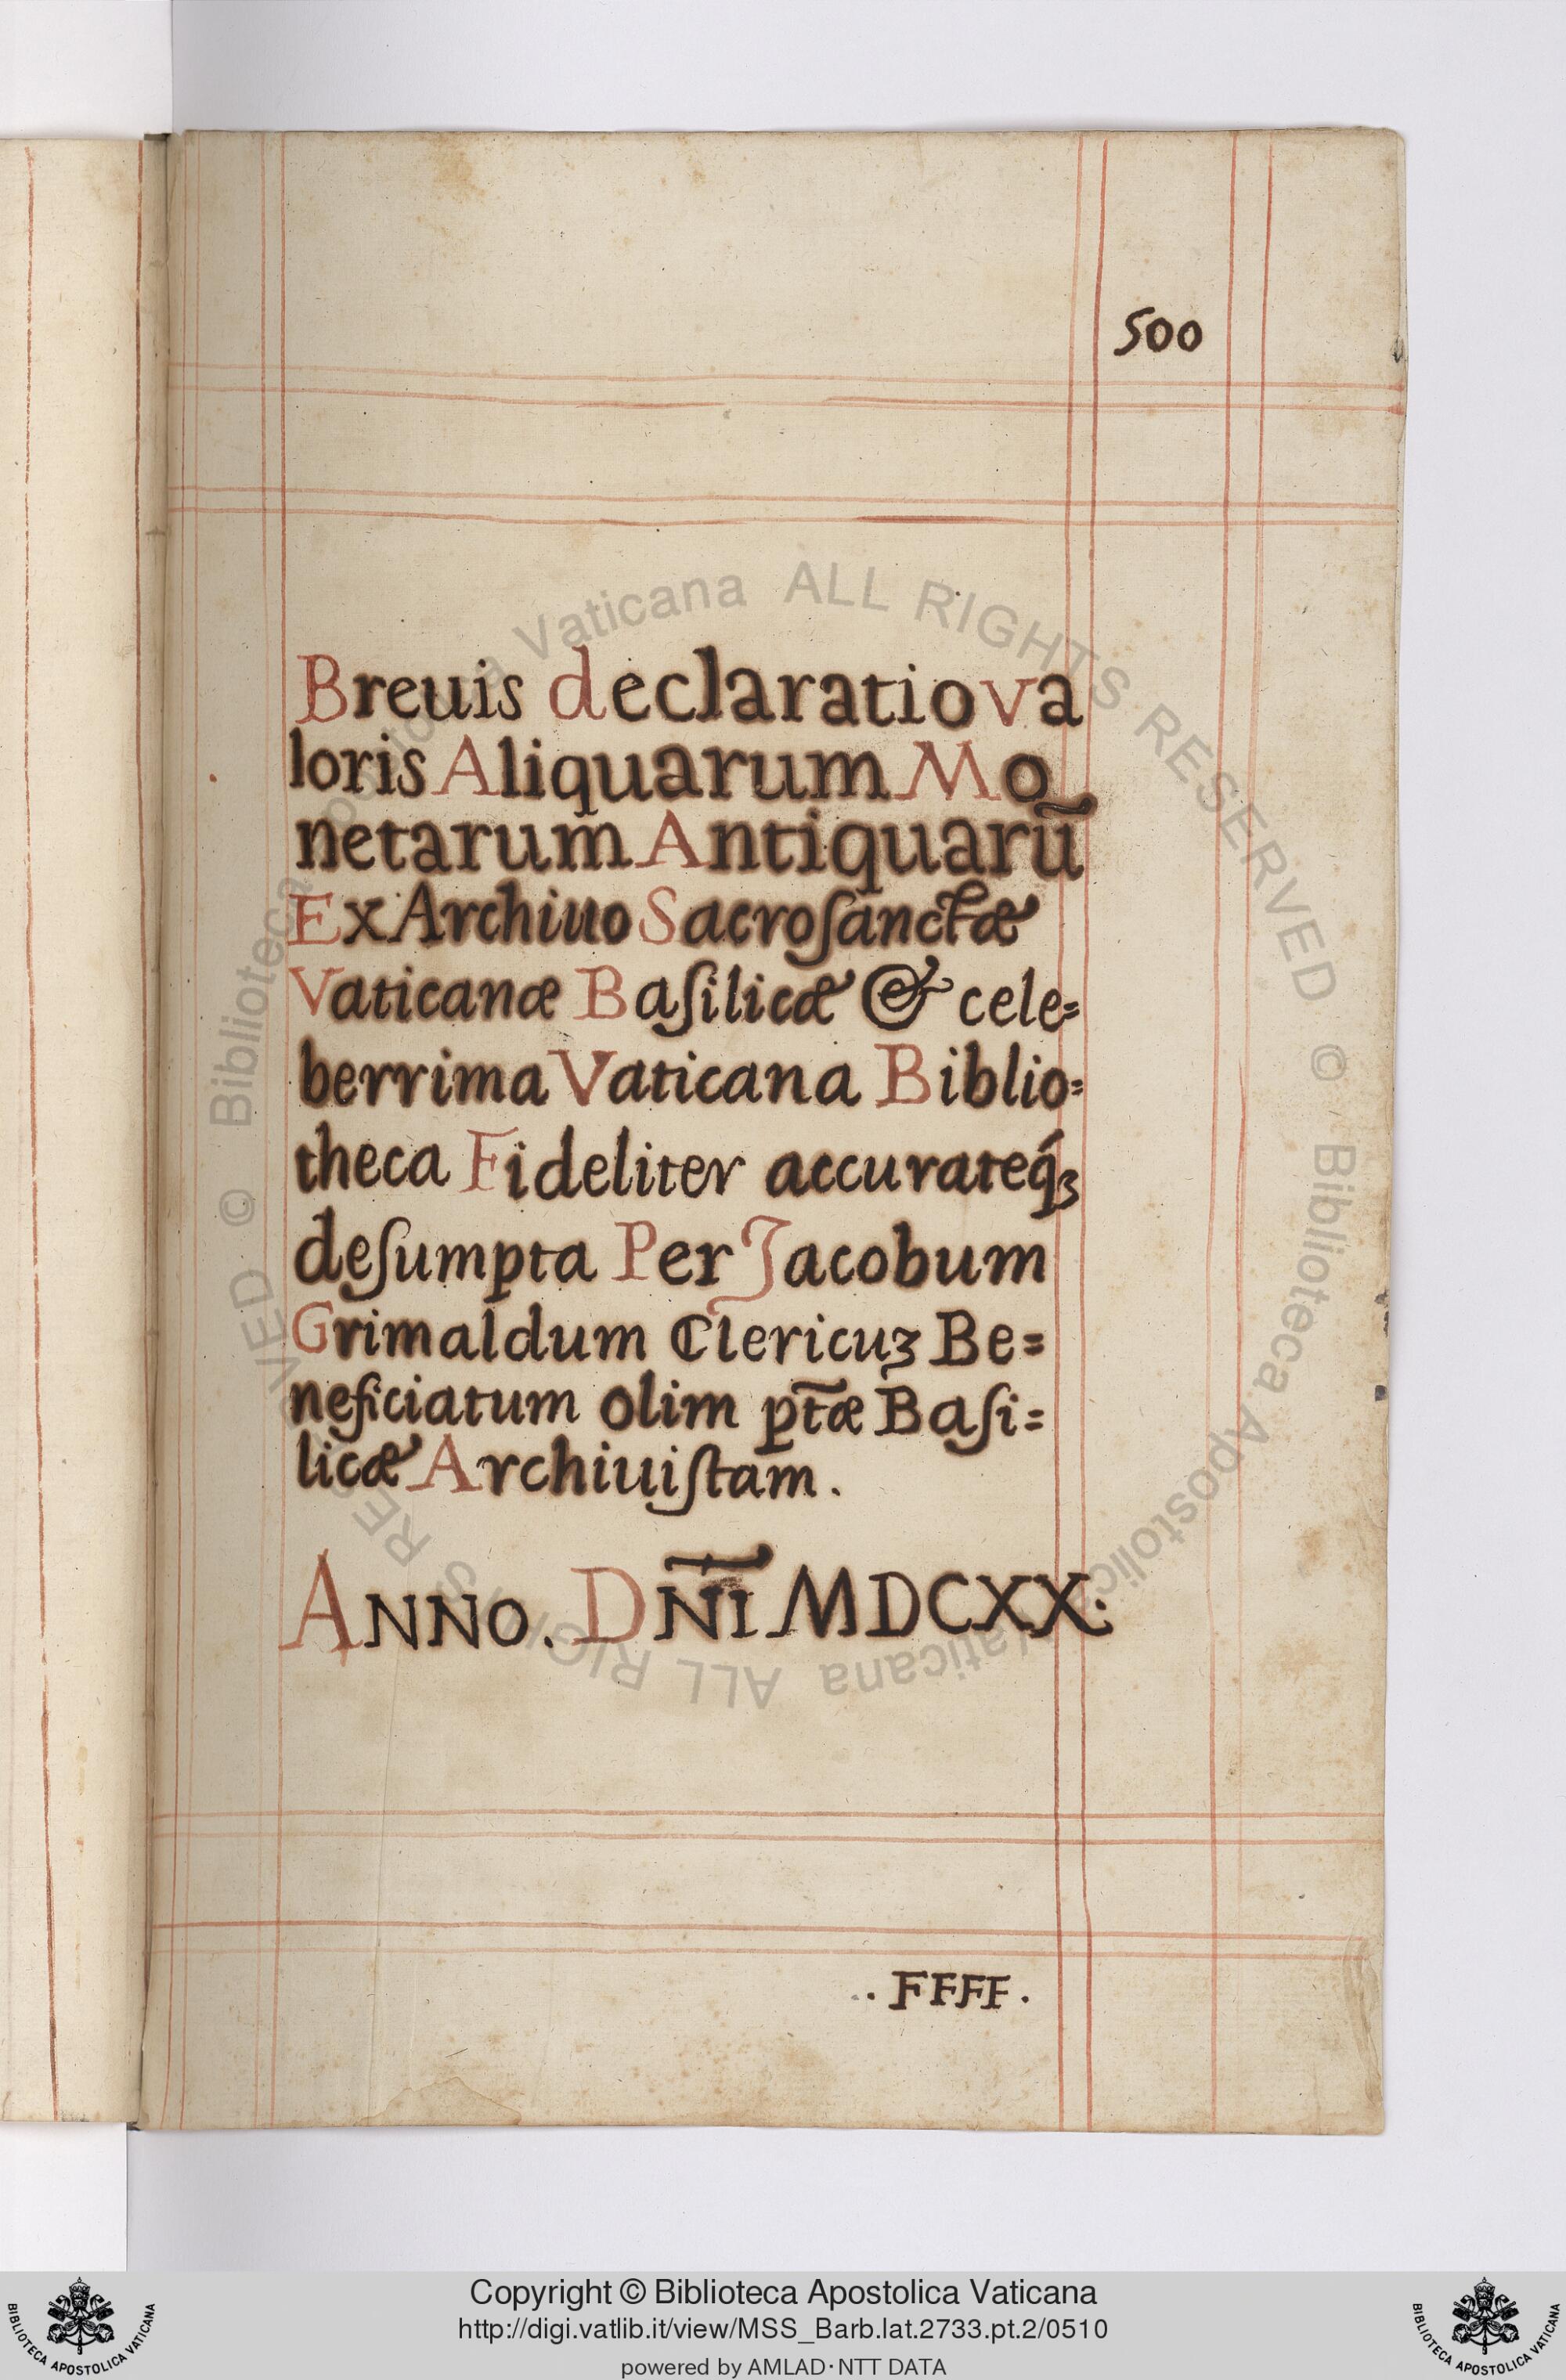 500
Breuis declaratio va
loris Aliquarum Mo
netarum Antiquarũ
Ex Archiuo Sacroſanctæ
Vaticanæ Baſilicæ & cele=
berrima Vaticana Biblio=
theca Fideliter accurateq́ꝫ
deſumpta Per Jacobum
Grimaldum Clericuꝫ Be=
neficiatum olim pt̃æ Baſi=
licæ Archiuiſtam.
ANNO. DÑI MDCXX:
. FFFF .
© Biblioteca Apostolica Vaticana ALL RIGHTS RESERVED © Biblioteca Apostolica Vaticana ALL RIGHTS RESERVED
Copyright © Biblioteca Apostolica Vaticana
http://digi.vatlib.it/view/MSS_Barb.lat.2733.pt.2/0510
powered by AMLAD·NTT DATA
BIBLIOTECA APOSTOLICA VATICANA
BIBLIOTECA APOSTOLICA VATICANA